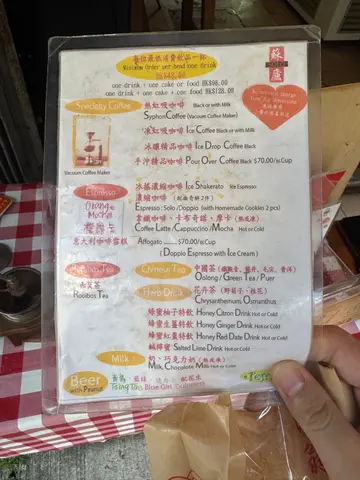 每位最低消費飲品一杯
Minimum order per head one drink
HK$48.00
one drink + one cake or food HK$98.00
one drink + one cake + one food HK$128.00
蘇廬
Specialty Coffee
熱虹吸咖啡 Black or with Milk
Syphon Coffee (Vacuum Coffee Maker)
Vacuum Coffee Maker
凍虹吸咖啡 Ice Coffee Black or with Milk
冰滴精品咖啡 Ice Drop Coffee Black
手沖精品咖啡 Pour Over Coffee Black $70.00/Cup
Espresso
冰搖濃縮咖啡 Ice Shakerato Ice Espresso
Orange Mocha
濃縮咖啡 (配曲奇餅2件)
Espresso : Solo / Doppio (with Homemade Cookies 2 pcs)
拿鐵咖啡、卡布奇諾、摩卡 (熱或凍)
Coffee Latte / Cappuccino / Mocha Hot or Cold
意大利咖啡雪糕 Affogato $70.00/Cup
(Doppio Espresso with Ice Cream)
Rooibos Tea
Rooibos Tea
Chinese Tea
中國茶
Oolong / Green Tea / Puer
Herb Drink
花卉茶 (野菊子、桂花)
Chrysanthemum, Osmanthus
蜂蜜柚子特飲 Honey Citron Drink Hot or Cold
蜂蜜生薑特飲 Honey Ginger Drink Hot or Cold
蜂蜜紅棗特飲 Honey Red Date Drink Hot or Cold
鹹檸蜜 Salted Lime Drink Hot or Cold
Milk
奶、巧克力奶 (熱或凍)
Milk, Chocolate Milk Hot or Cold
Beer
with Peanut
青島、藍妹
Tsing Tao, Blue Girl